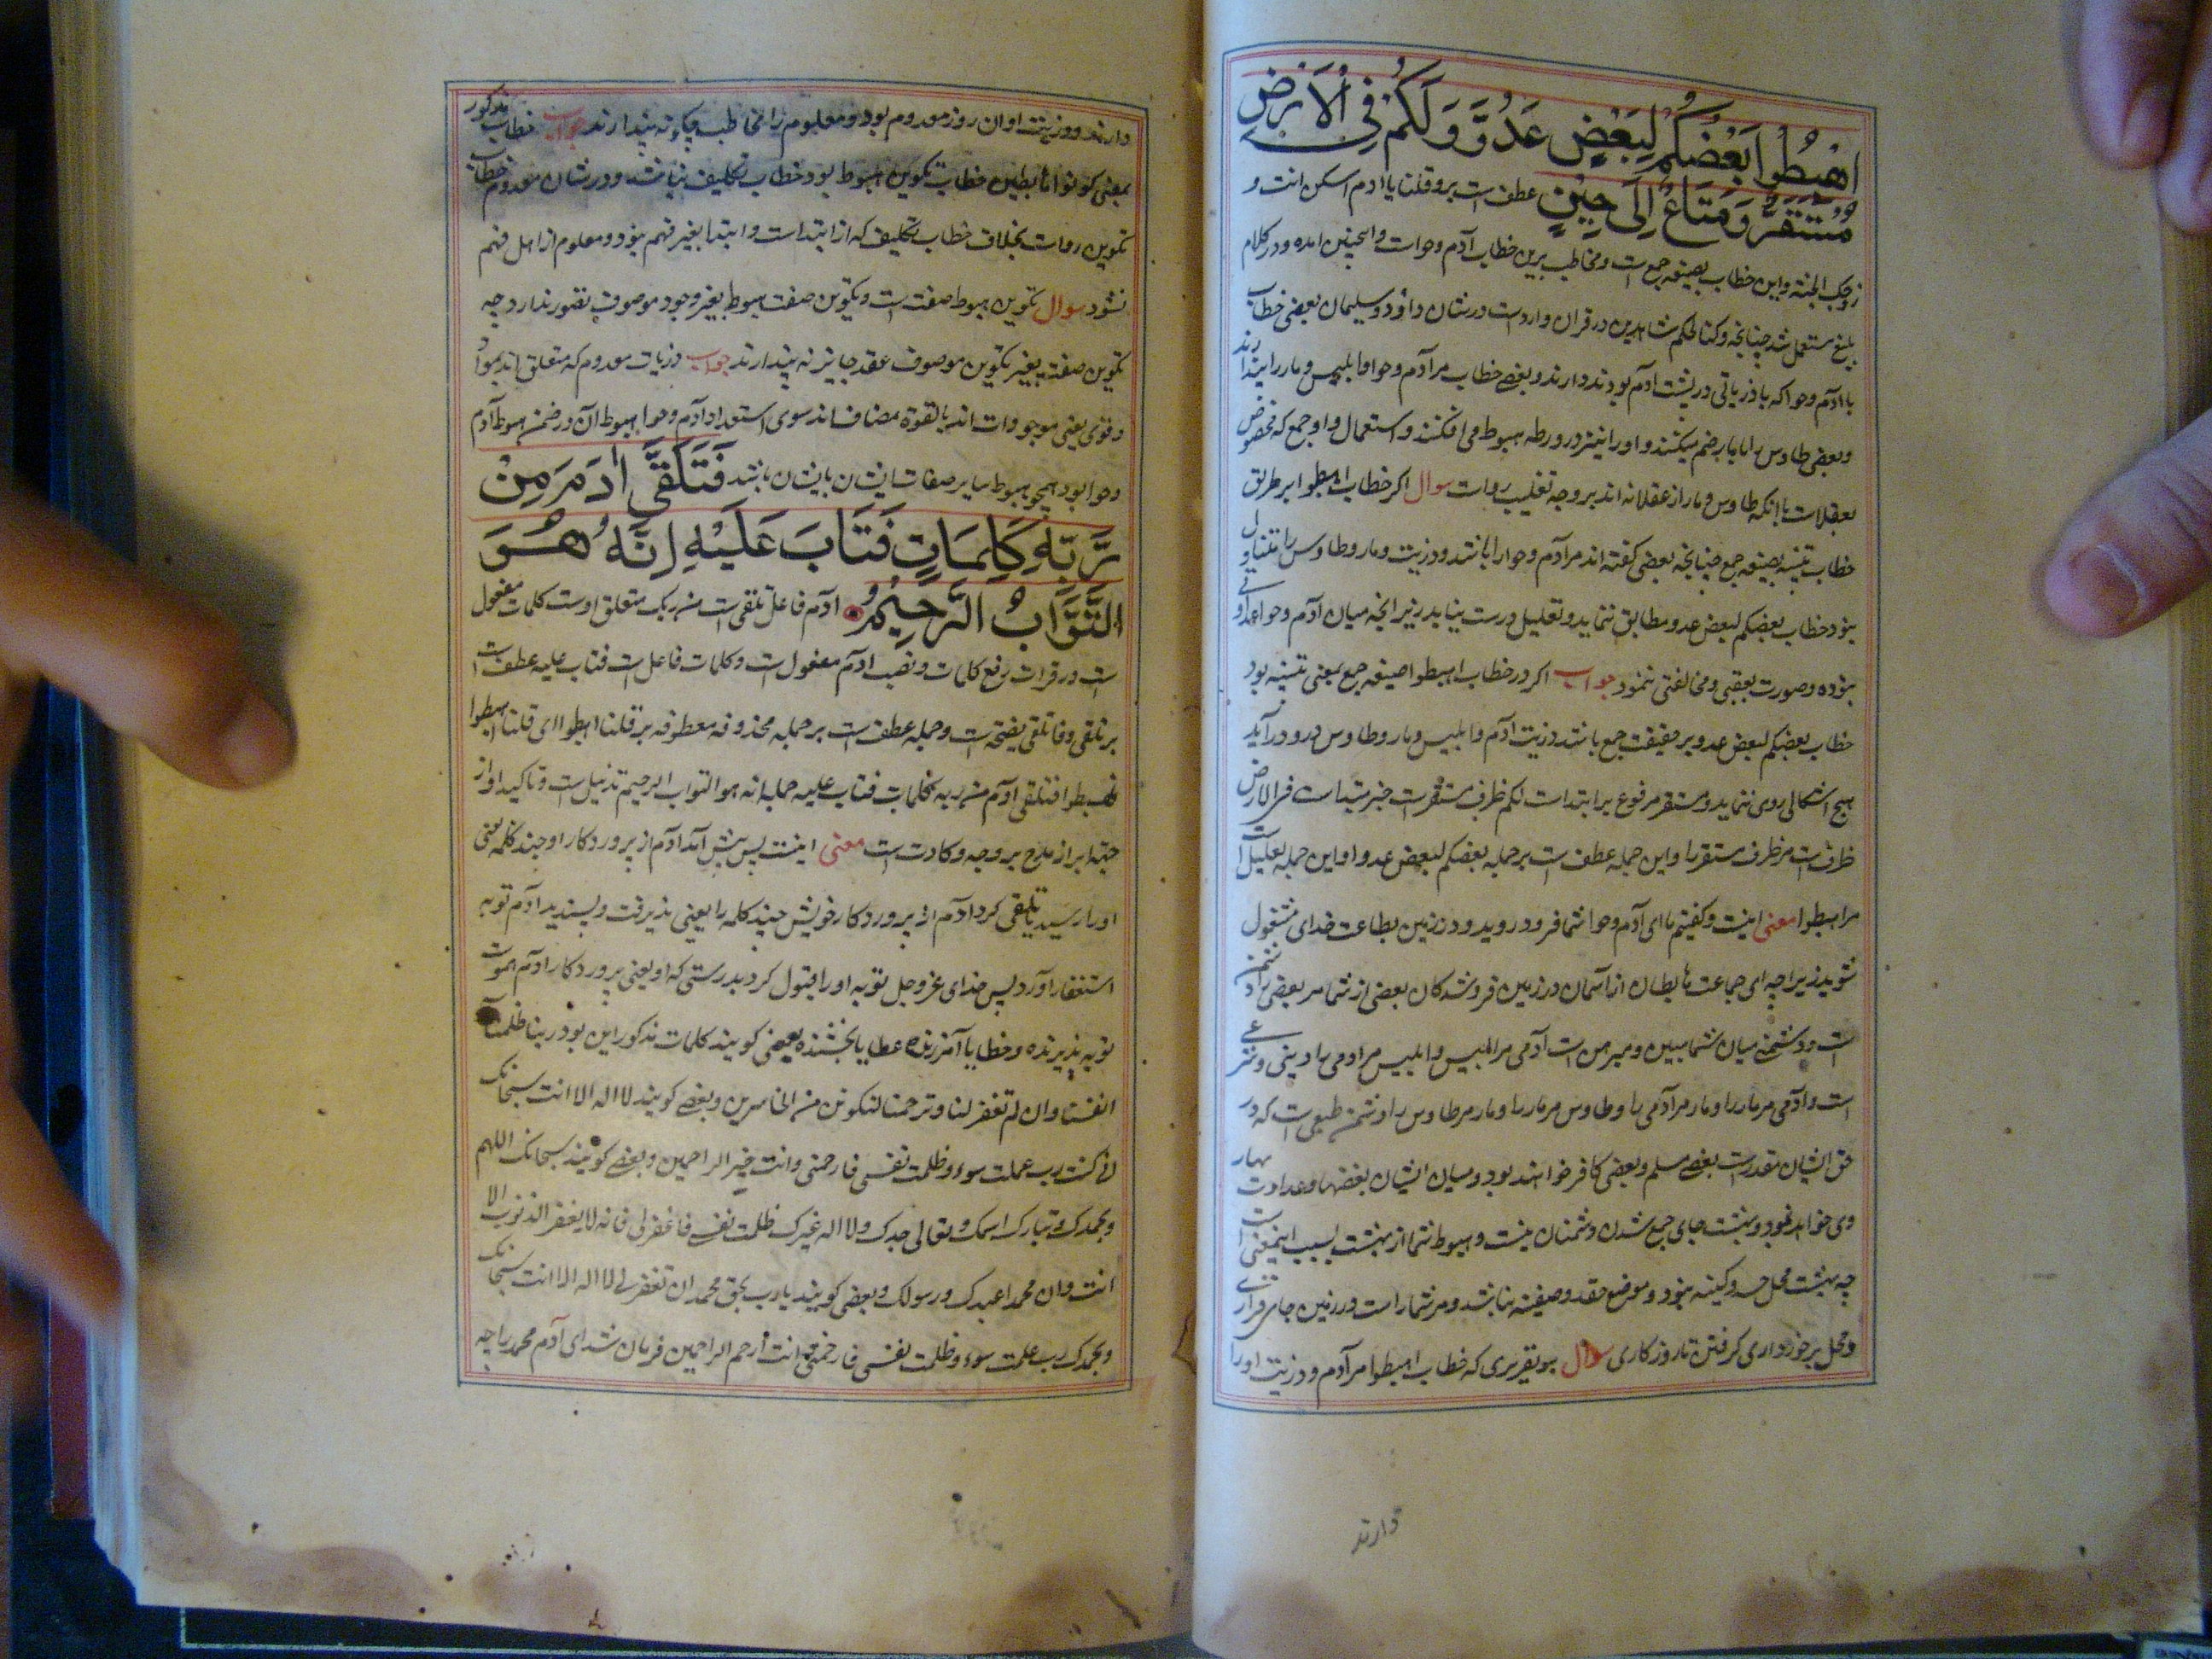 اهْبِطُوا بَعْضُكُمْ لِبَعْضٍ عَدُوٌّ وَلَكُمْ فِي الْاَرْضِ
مُسْتَقَرٌّ وَمَتَاعٌ اِلَى حِيْنٍ عطف است بر وقلنا یاادم اسکن انت و
زوجک الجنة واین خطاب بصیغه جمع است ومخاطب برین خطاب آدم وحوا است واینچنین امده ودر کلام
بلیغ مستعمل شد چنانچه وکنا لحکمهم شاهدین در قران وارد است در شان داؤد وسلیمان بعضی خطاب
باآدم وحوا که با ذریاتی در پشت ادم بودند دارند وبعضے خطاب مر آدم وحوا وابلیس ومار را پندارند
وبعضی طاوس را باینها ضم میکنند واورا نیز در ورطه هبوط می افکنند واستعمال واو جمع که مخصوص
بعقلا است باانکه طاوس ومار از عقلا نه اند بر وجه تغلیب روا است سوال اکر خطاب اهبطوا بر طریق
خطاب تثنیه بصیغه جمع چنانچه بعضی کفته اند مر آدم وحوا را باشد وذریت ومار وطاوس را متناول
نبود خطاب بعضکم لبعض عدو مطابق ننماید وتعلیل درست نیاید زیرا انچه میان آدم وحوا عداوتی
نبوده وصورت بعضی ومخالفتی ننمود جواب اکر در خطاب اهبطوا صیغه جمع بمعنی تثنیه بود
خطاب بعضکم لبعض عدو بر حقیقت جمع باشد وذریت آدم وابلیس ومار وطاوس درو در آید
هیچ اشکالی روی ننماید ومستقر مرفوع بر ابتدا است لکم ظرف مستقر است خبر مبتدا است فی الارض
ظرف است مر ظرف مستقر را واین جمله عطف است بر جمله بعضکم لبعض عدو واین جمله تعلیل است
مر اهبطوا معنی اینست وکفتیم ماای آدم وحوا شما فرود روید ودر زمین بطاعت خدای مشغول
شوید زیرا چه ای جماعت هابطان از آسمان در زمین فروشدکان بعضی از شما مر بعضی را دشمن
است ودشمنی میان شما مبین ومبرمن است آدمی مر ابلیس وابلیس مر ادمی را دینی وشرعی
است وآدمی مر مار را ومار مر آدمی را وطاوس مر مار را ومار مر طاوس را دشمن طبعی است که در
حق ایشان مقدر است بعضے مسلم وبعضی کافر خواهند بود ومیان ایشان بغضها وعداوتها
روی خواهد نمود وبهشت جای جمع شدن دشمنان نیست وهبوط شما از بهشت بسبب اینمعنی است
چه بهشت محل حسد وکینه نبود وموضع حقد وضغینه نباشد ومر شمارا است در زمین جای قرار
ومحل برخورداری کرفتن تا روزکاری سوال بر تقریری که خطاب اهبطوا مر آدم وذریت اورا
دارند
دارند وذریت او ان روز معدوم بود ومعدوم را مخاطب چکونه پندارند جواب خطاب مذکور
بمعنی کونوا هابطین خطاب تکوین هبوط بود خطاب تکلیف نباشد ودر شان معدوم خطاب
تکوین روا است بخلاف خطاب تکلیف که از ابتدا است وابتدا بغیر فهم نبود ومعلوم از اهل فهم
نشود سوال تکوین هبوط صفت است وتکوین صفت هبوط بغیر وجود موصوف تصور ندارد چه
تکوین صفت بغیر تکوین موصوف عقد جایز نه پندارند جواب ذریات معدوم که متعلق اند بمواد
وقوی یعنی موجودات اند بالقوة مضاف اند سوی استعداد آدم وحوا هبوط ان در ضمن هبوط آدم
وحوا بود همچو هبوط سایر صفات ایشان باایشان باشد فَتَلَقَّى اٰدَمُ مِنْ
رَّبِّهٖ كَلِمَاتٍ فَتَابَ عَلَيْهِ اِنَّهٗ هُوَ
التَّوَّابُ الرَّحِيْمُ آدم فاعل تلقی است من ربک متعلق اوست کلمات مفعول
است ودر قرات رفع کلمات ونصب ادم مفعول است وکلمات فاعل است فتاب علیه عطف است
بر تلقی وفا تلقی فصیحه است وجمله عطف است بر جمله محذوفه معطوفه بر قلنا اهبطوا ای قلنا اهبطوا
فهبطوا فتلقی آدم من ربه کلمات فتاب علیه جمله انه هو التواب الرحیم تذییل است وتاکید او از
معنی اینست پس پیش آمد آدم از پروردکار او چند کلمه یعنی
اورا رسید یا تلقی کرد آدم از پروردکار خویش چند کلمه را یعنی پذیرفت وپسندید آدم توبه
استغفار آورد پس خدای عز وجل توبه اورا قبول کرد بدرستی که او یعنی پروردکار ادم هموست
توبه پذیرنده وخطایا آمرزنده عطایا بخشنده بعضی کویند کلمات مذکور این بود ربنا ظلمنا
انفسنا وان لم تغفر لنا وترحمنا لنکونن من الخاسرین وبعضے کویند لا اله الا انت سبحانک
انی کنت رب عملت سوء وظلمت نفسی فارحمنی وانت خیر الراحمین وبعضے کویند سبحانک اللهم
وبحمدک وتبارک اسمک وتعالی جدک ولا اله غیرک ظلمت نفسی فاغفر لی فانه لا یغفر الذنوب الا
انت وان محمد اعبدک ورسولک وبعضی کویند یارب بحق محمد ان تغفر لی لا اله الا انت سبحانک
وبحمدک رب عملت سوء وظلمت نفسی فارحمنی انت أرحم الراحمین فرمان شد ای آدم محمد را چه